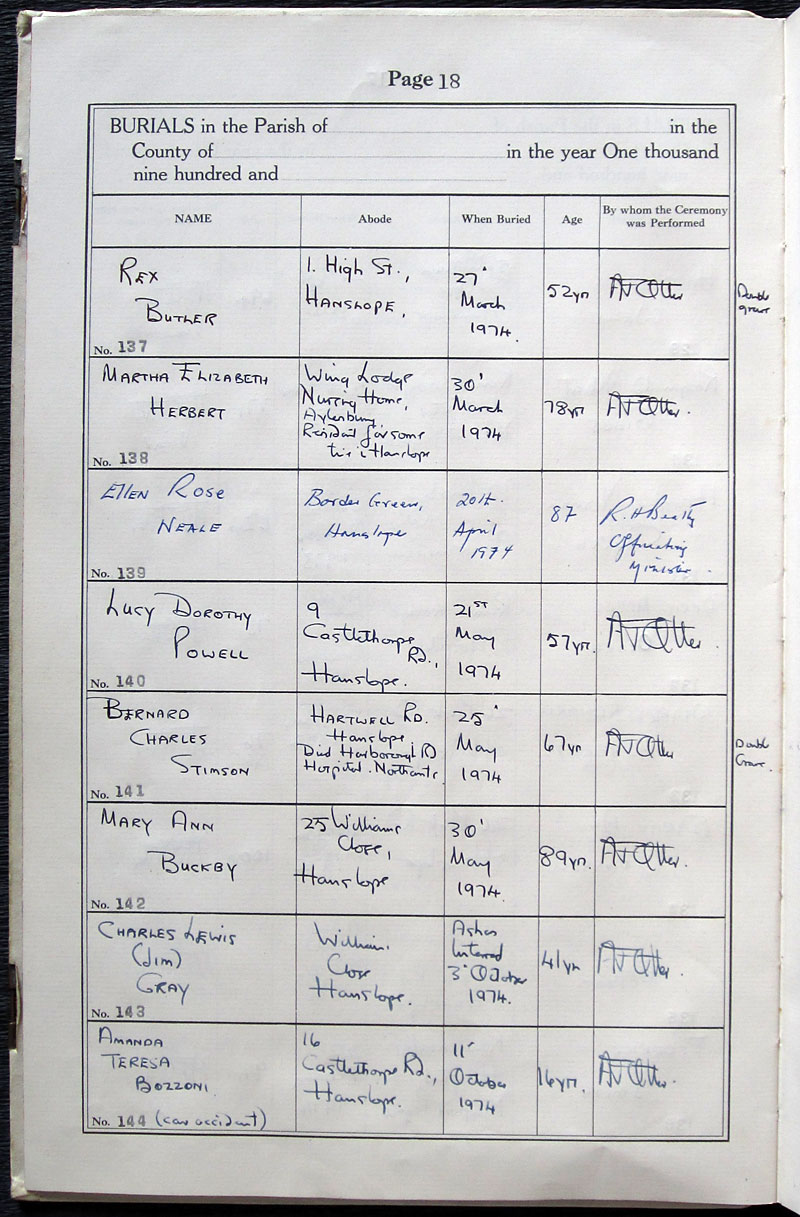 Page 18
BURIALS in the Parish of in the
County of in the year One thousand
nine hundred and
NAME Abode When Buried Age By whom the Ceremony was Performed
REX
BUTLER
No. 137
1. High St.,
HANSLOPE,
27'
March
1974.
52yrs
Double
grave
MARTHA ELIZABETH
HERBERT
No. 138
Wing Lodge
Nursing Home,
Aylesbury.
Resident for some
time i Hanslope
30'
March
1974
78yrs
ELLEN ROSE
NEALE
No. 139
Border Green,
Hanslope
20th.
April
1974
87
R. H Beatty
Officiating
Minister.
LUCY DOROTHY
POWELL
No. 140
9
Castlethorpe
Rd.,
Hanslope.
21ST
May
1974
57yrs.
BERNARD
CHARLES
STIMSON
No. 141
HARTWELL RD.
Hanslope
Died Harborough Rd
Hospital. Northants
25'
May
1974
67yrs
Double
Grave.
MARY ANN
BUCKBY
No. 142
25 Williams
Close,
Hanslope
30'
May
1974.
89yrs.
CHARLES LEWIS
(JIM)
GRAY
No. 143
William
Close
Hanslope.
Ashes
Interred
3' October
1974.
41yrs
AMANDA
TERESA
BOZZONI.
No. 144 (car accident)
16
Castlethorpe Rd.,
Hanslope.
11'
October
1974
16yrs.